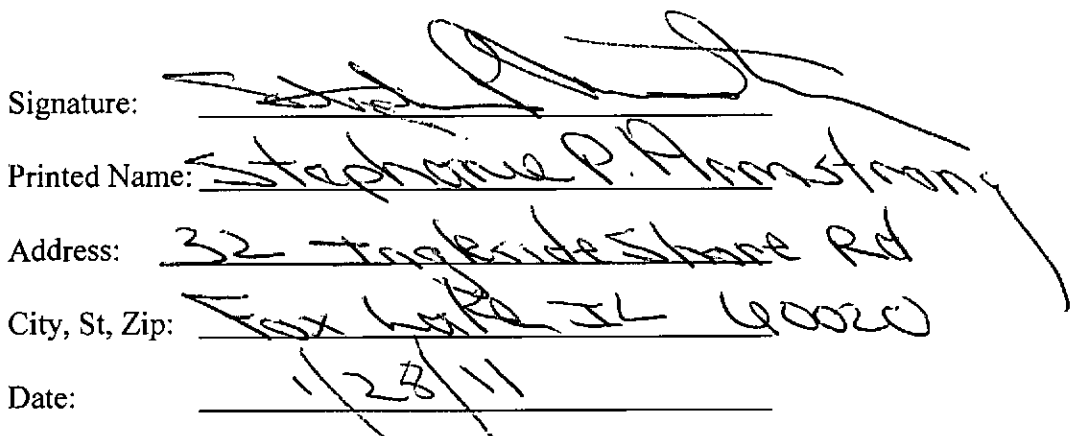 Signature:
Printed Name: Stephanie P. Armstrong
Address: 32 Ingleside Shore Rd
City, St, Zip: Fox Lake IL 60020
Date: 1/28/11